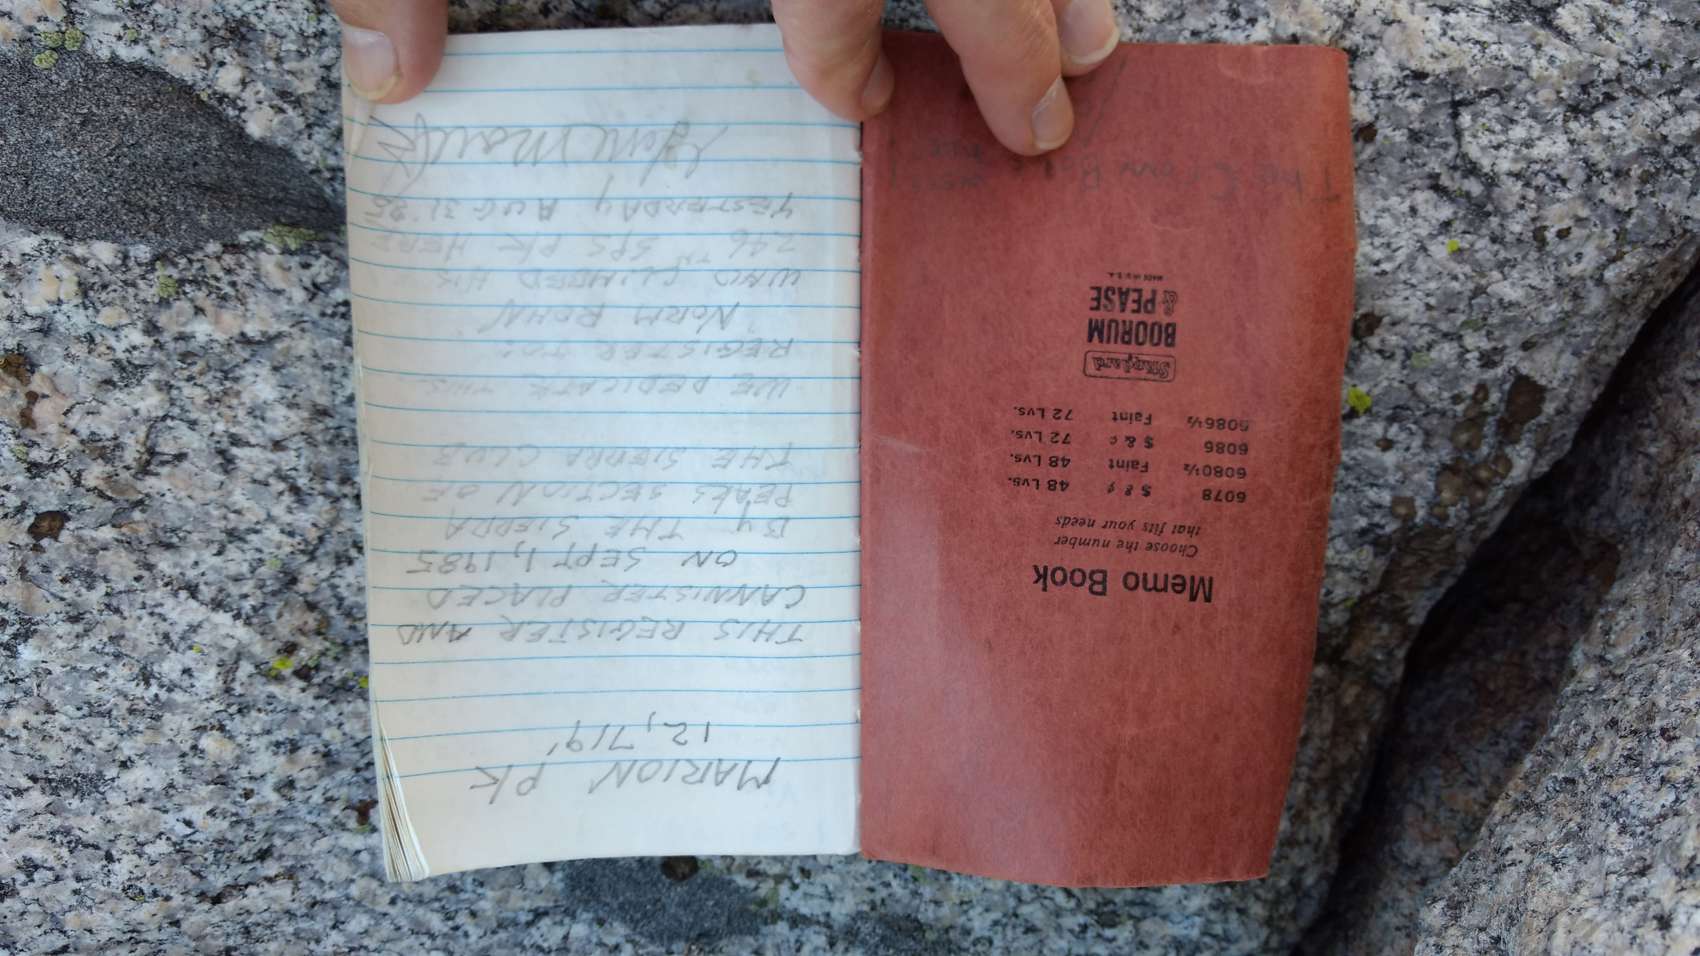 Memo Book
Choose the number
that fits your needs
6078 $ & ¢ 48 Lvs.
6080½ Faint 48 Lvs.
6086 $ & ¢ 72 Lvs.
6086½ Faint 72 Lvs.
Standard
BOORUM
& PEASE
MADE IN U.S.A.
The
MARION PK
12,719'
THIS REGISTER AND
CANNISTER PLACED
ON SEPT 1, 1985
BY THE SIERRA
PEAKS SECTION OF
THE SIERRA CLUB
WE DEDICATE THIS
REGISTER TO:
NORM ROHN
WHO CLIMBED HIS
246TH SPS PK HERE
YESTERDAY AUG 31 '85